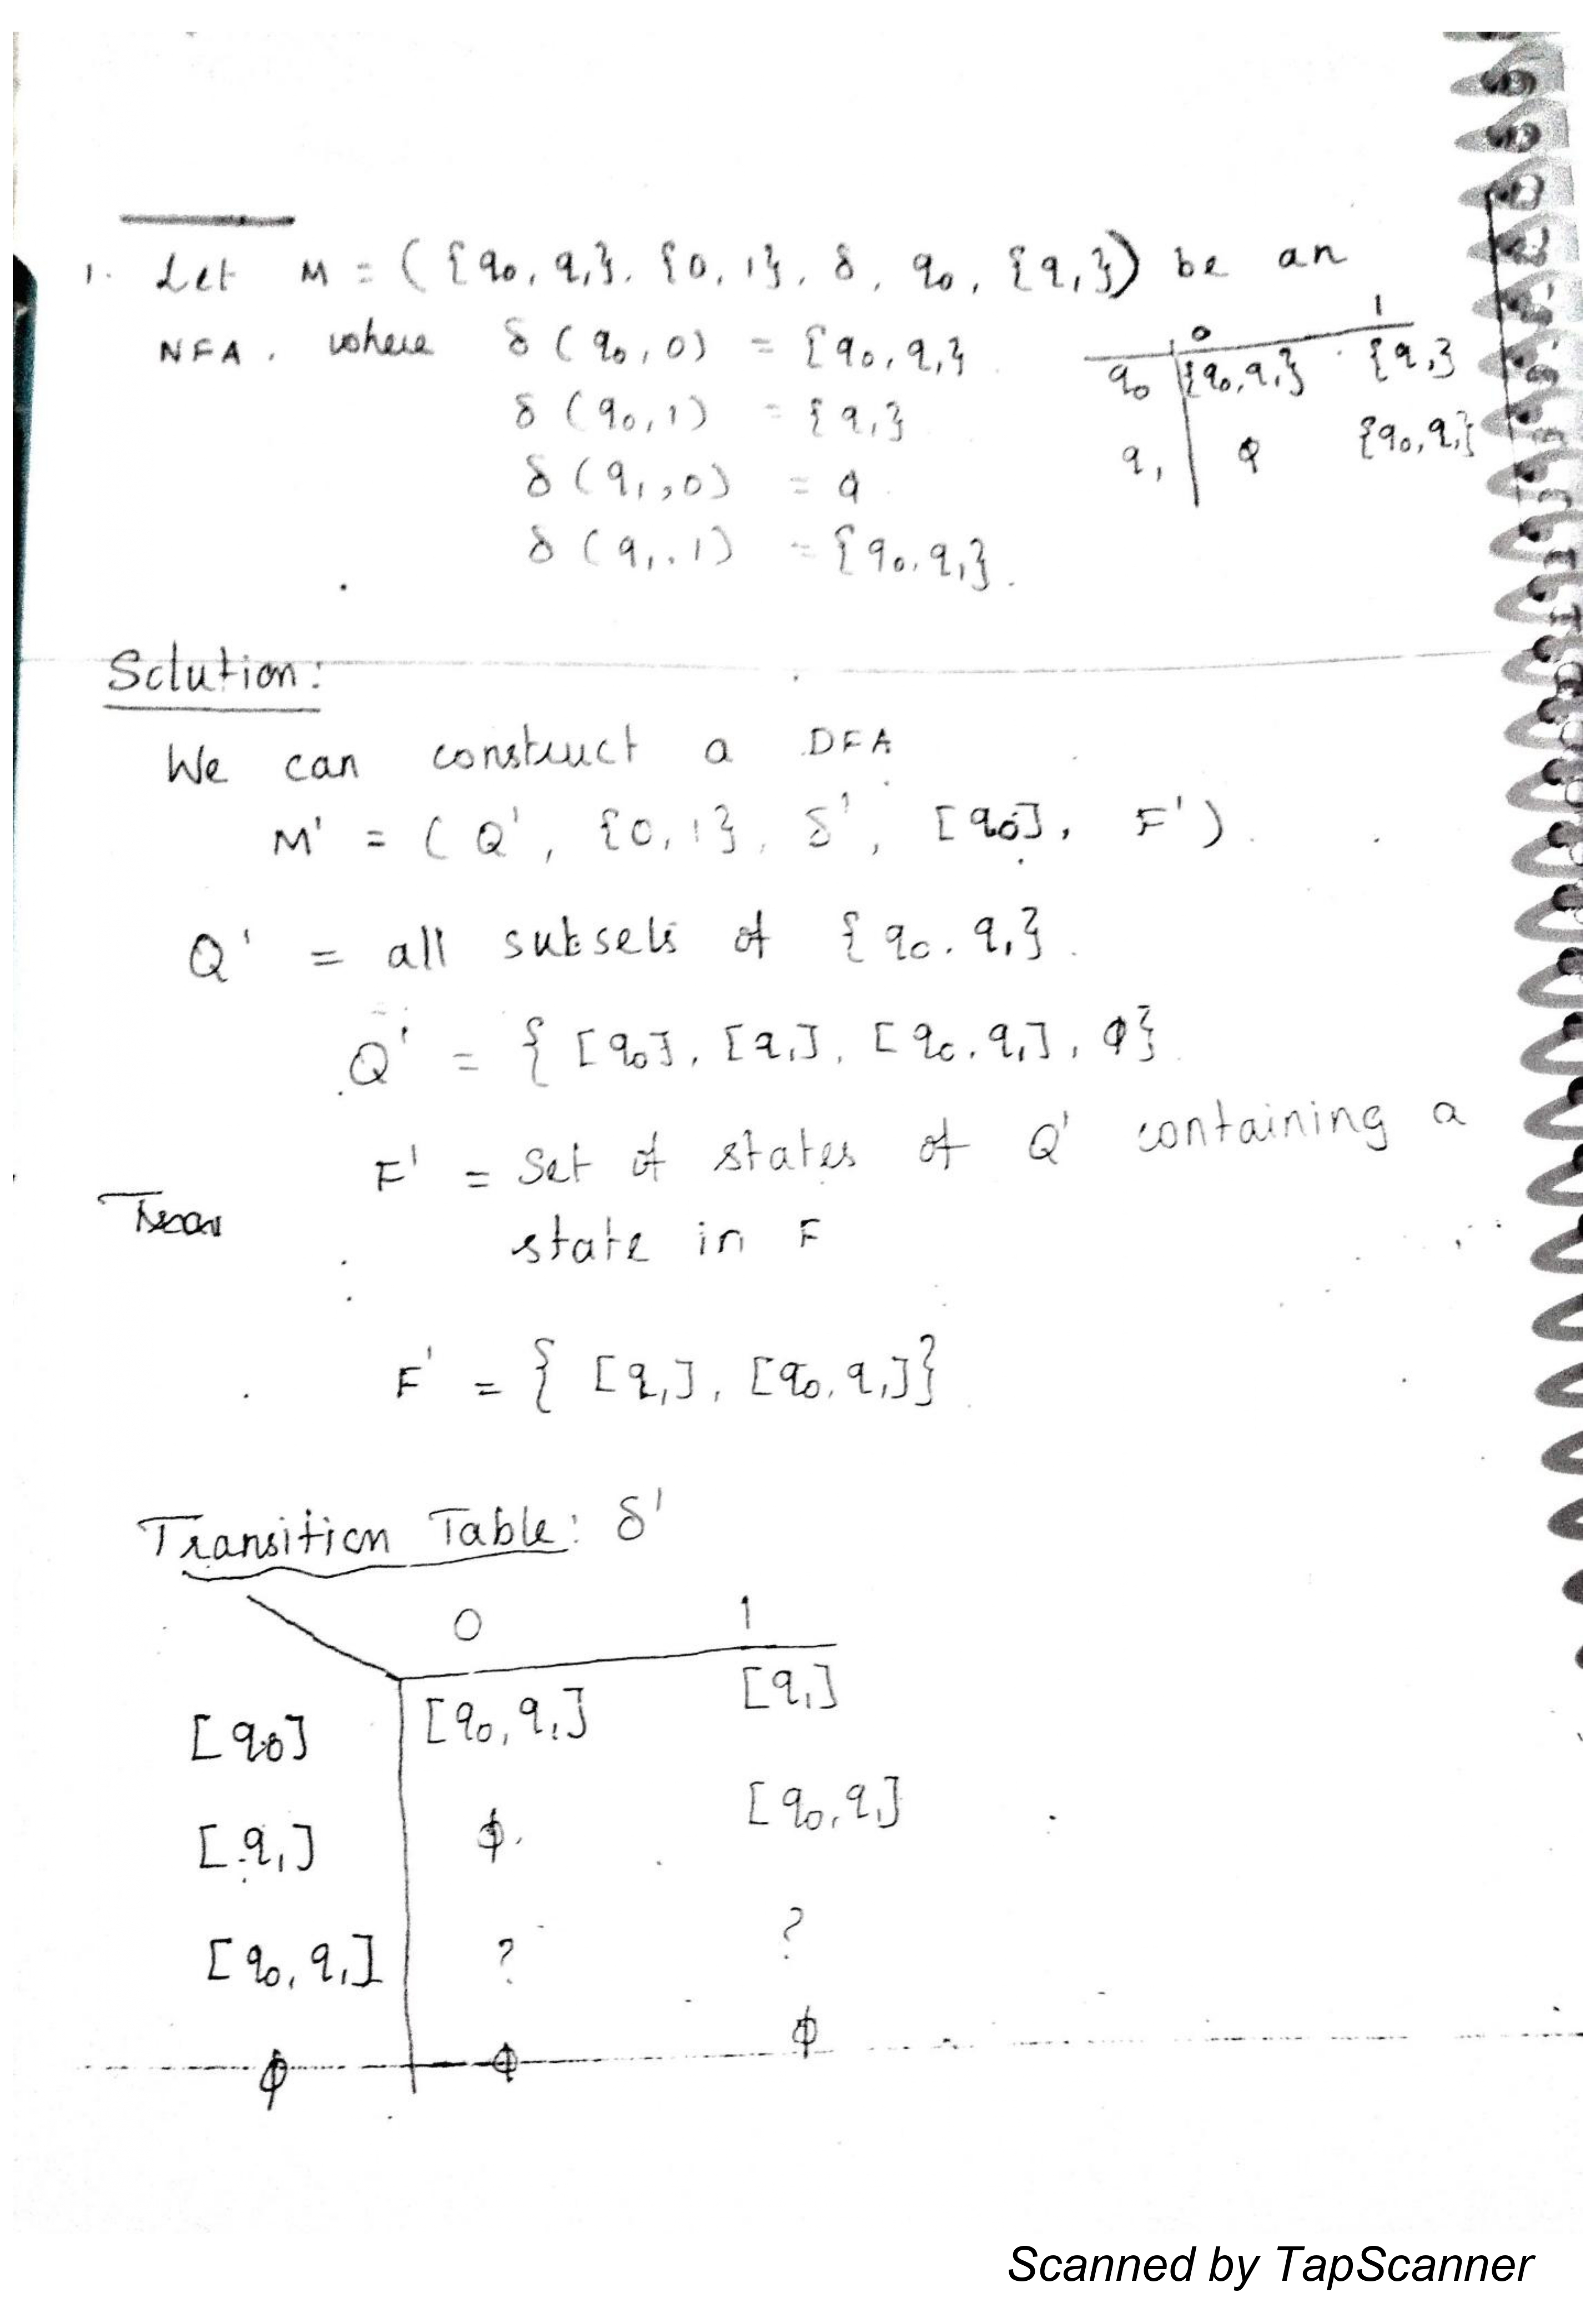 1. Let M = ({q₀, q₁}, {0, 1}, δ, q₀, {q₁}) be an
NFA. where δ (q₀, 0) = {q₀, q₁}
δ (q₀, 1) = {q₁}
δ (q₁, 0) = φ
δ (q₁, 1) = {q₀, q₁}.
0 1
q₀ {q₀, q₁} {q₁}
q₁ φ {q₀, q₁}
Solution:
We can construct a DFA
M' = (Q', {0, 1}, δ', [q₀], F').
Q' = all subsets of {q₀, q₁}.
Q' = { [q₀], [q₁], [q₀, q₁], φ}.
F' = Set of states of Q' containing a
state in F
F' = { [q₁], [q₀, q₁]}
Transition Table: δ'
0 1
[q₀] [q₀, q₁] [q₁]
[q₁] φ [q₀, q₁]
[q₀, q₁] ? ?
φ φ φ
Scanned by TapScanner